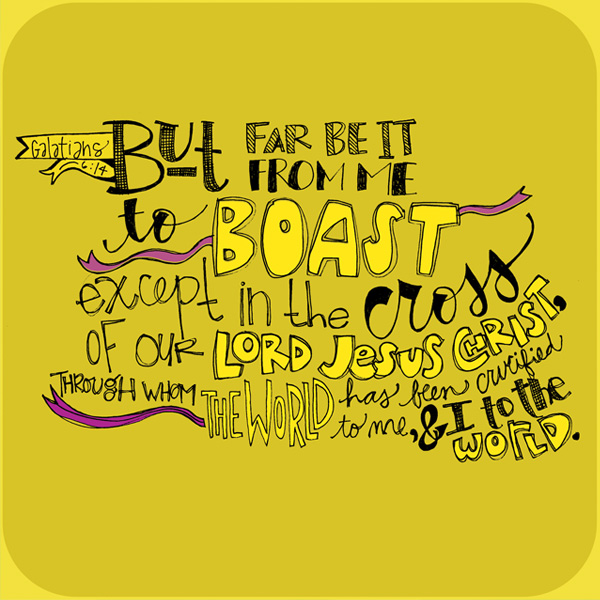 Galatians 6:14
But FAR BE IT FROM ME
to BOAST
except in the cross
OF OUR LORD JESUS CHRIST,
THROUGH WHOM THE WORLD has been crucified
to me, & I to the
WORLD.